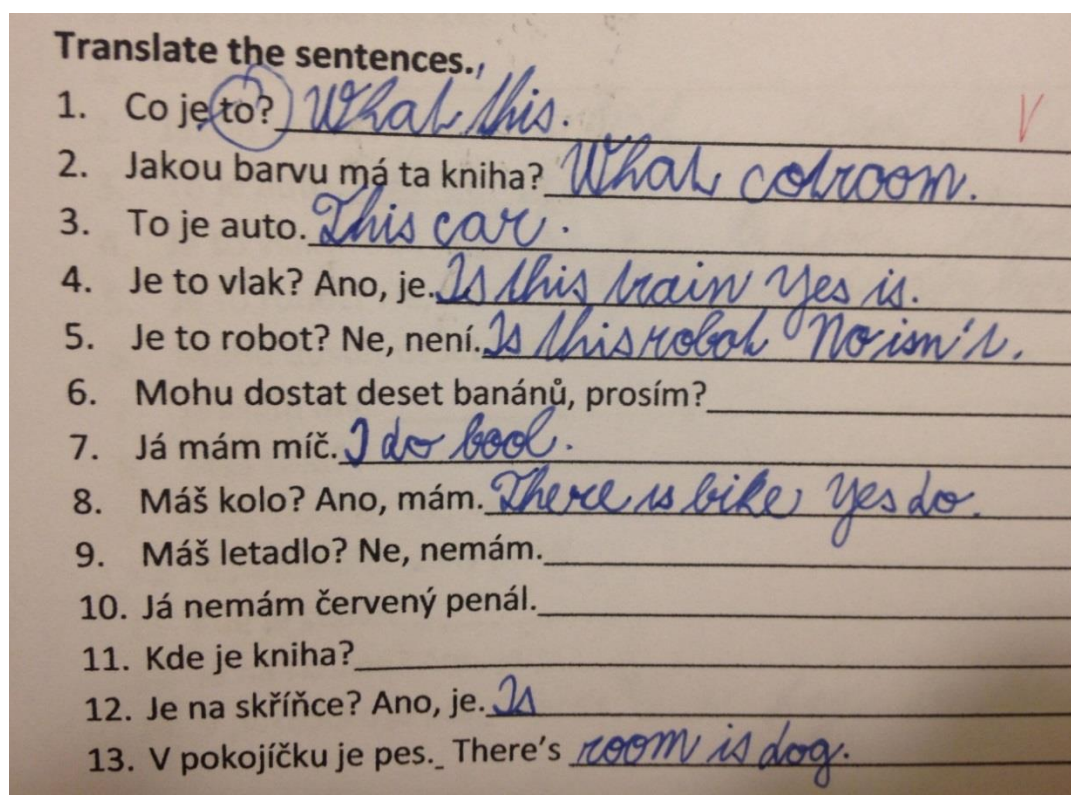 Translate the sentences.
1. Co je to? What this.
2. Jakou barvu má ta kniha? What colroom.
3. To je auto. This car.
4. Je to vlak? Ano, je. Is this train Yes is.
5. Je to robot? Ne, není. Is this robot No isn't.
6. Mohu dostat deset banánů, prosím?
7. Já mám míč. I do bool.
8. Máš kolo? Ano, mám. There is bike, Yes do.
9. Máš letadlo? Ne, nemám.
10. Já nemám červený penál.
11. Kde je kniha?
12. Je na skříňce? Ano, je. Is
13. V pokojíčku je pes. There's room is dog.